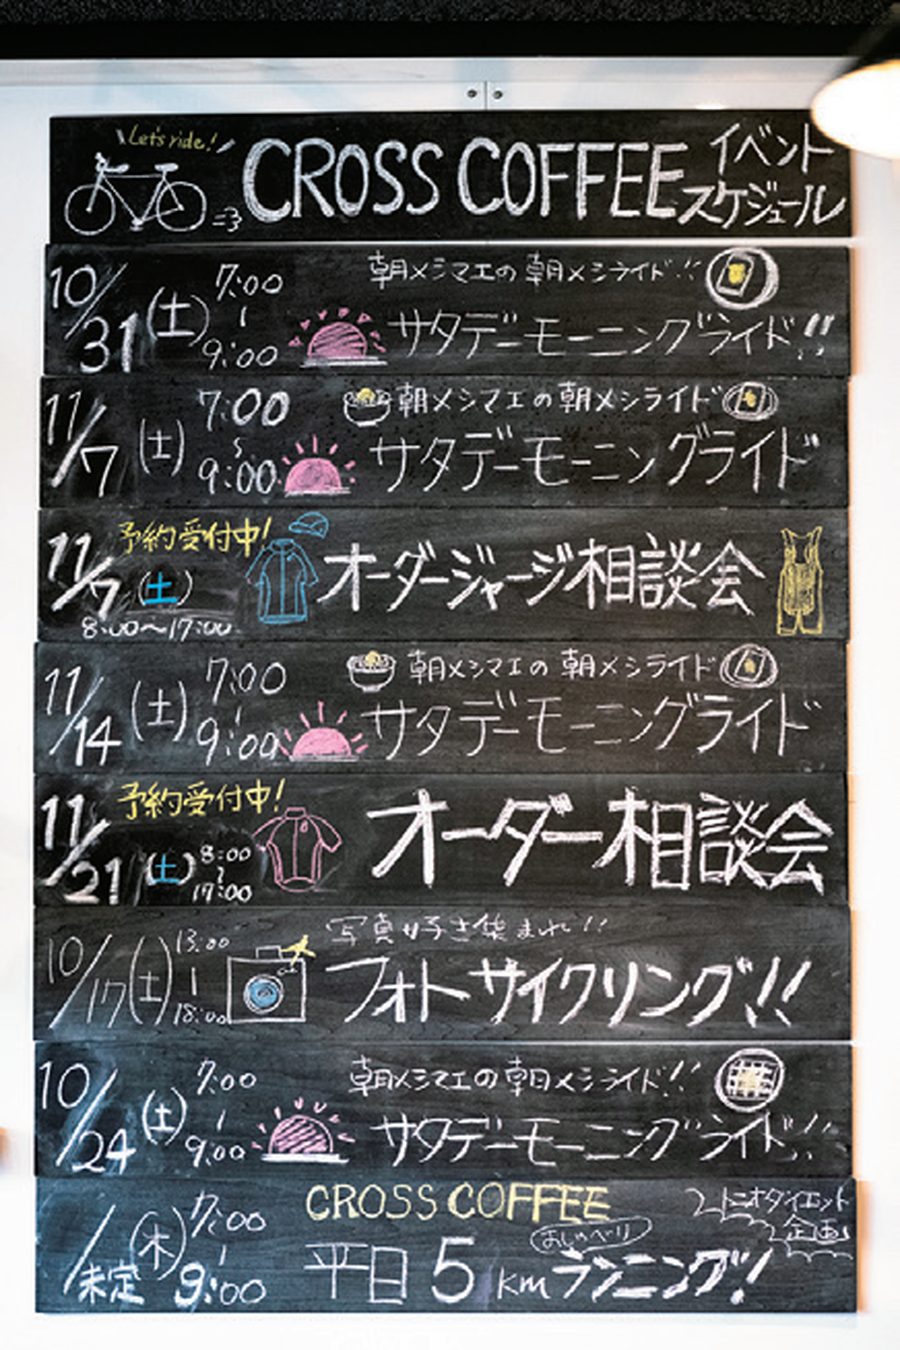 Let's ride!
CROSS COFFEE イベントスケジュール
10/31(土) 7:00 〜 9:00
朝メシマエの朝メシライド!!
サタデーモーニングライド!!
11/7(土) 7:00 〜 9:00
朝メシマエの朝メシライド
サタデーモーニングライド
予約受付中!
11/7(土) 8:00〜17:00
オーダージャージ相談会
11/14(土) 7:00 〜 9:00
朝メシマエの朝メシライド
サタデーモーニングライド
予約受付中!
11/21(土) 8:00 〜 17:00
オーダー相談会
10/17(土) 13:00 〜 18:00
写真好き集まれ!!
フォトサイクリング!!
10/24(土) 7:00 〜 9:00
朝メシマエの朝メシライド!!
サタデーモーニングライド!!
/未定(木) 7:00 〜 9:00
CROSS COFFEE
平日5km おしゃべりランニング!
ダイエット企画